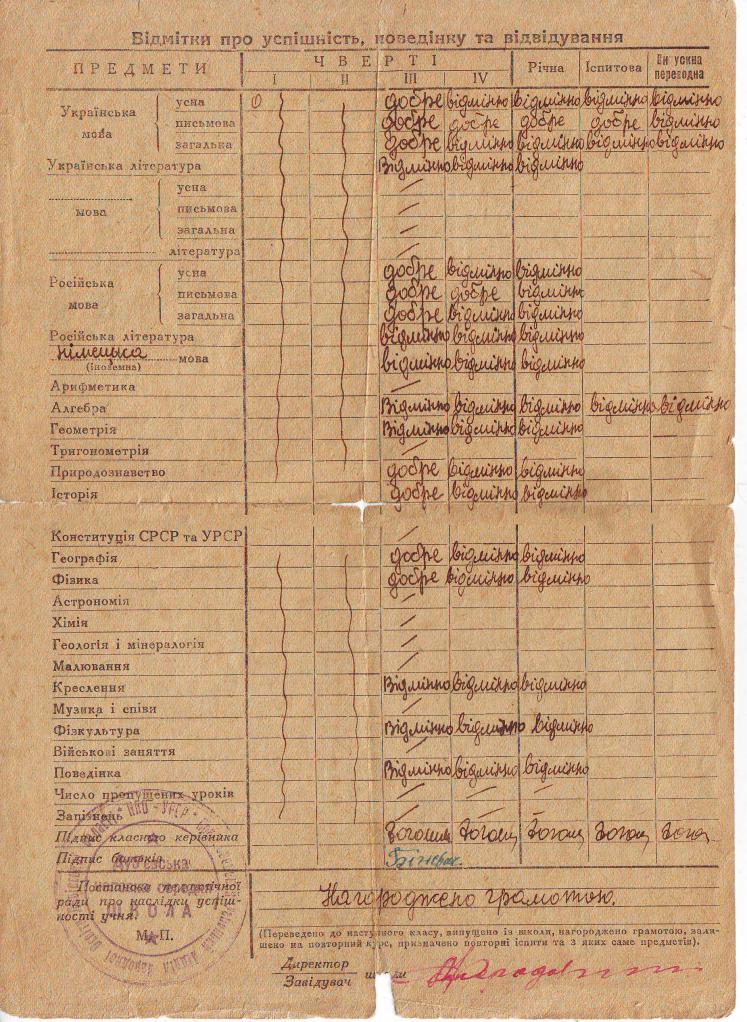 Відмітки про успішність, поведінку та відвідування
ПРЕДМЕТИ ЧВЕРТІ Річна Іспитова Випускна переводна
I II III IV
Українська мова
усна добре відмінно відмінно відмінно відмінно
письмова добре добре добре добре відмінно
загалька добре відмінно відмінно відмінно відмінно
Українська література Відмінно відмінно відмінно
мова
усна
письмова
загальна
література
Російська мова
усна добре відмінно відмінно
письмова добре добре відмінно
загальна добре відмінно відмінно
Російська література відмінно відмінно відмінно
німецька мова відмінно відмінно відмінно
(іноземна)
Арифметика
Алгебра Відмінно відмінно відмінно відмінно відмінно
Геометрія Відмінно відмінно відмінно
Тригонометрія
Природознавство добре відмінно відмінно
Історія добре відмінно відмінно
Конституція СРСР та УРСР
Географія добре відмінно відмінно
Фізика добре відмінно відмінно
Астрономія
Хімія
Геологія і мінералогія
Малювання
Креслення Відмінно відмінно відмінно
Музика і співи
Фізкультура Відмінно відмінно відмінно
Військові заняття
Поведінка Відмінно відмінно відмінно
Число пропущених уроків
Запізнень
Підпис класного керівника
Підпис батьків
Постанова педагогічної
ради про наслідки успіш-
ності учня.
М. П.
НКО - УРСР
ШКОЛА
Нагороджено грамотою.
(Переведено до наступного класу, випущено із школи, нагороджено грамотою, зали-
шено на повторний курс, призначено повторні іспити та з яких саме предметів).
Директор
Завідувач школи